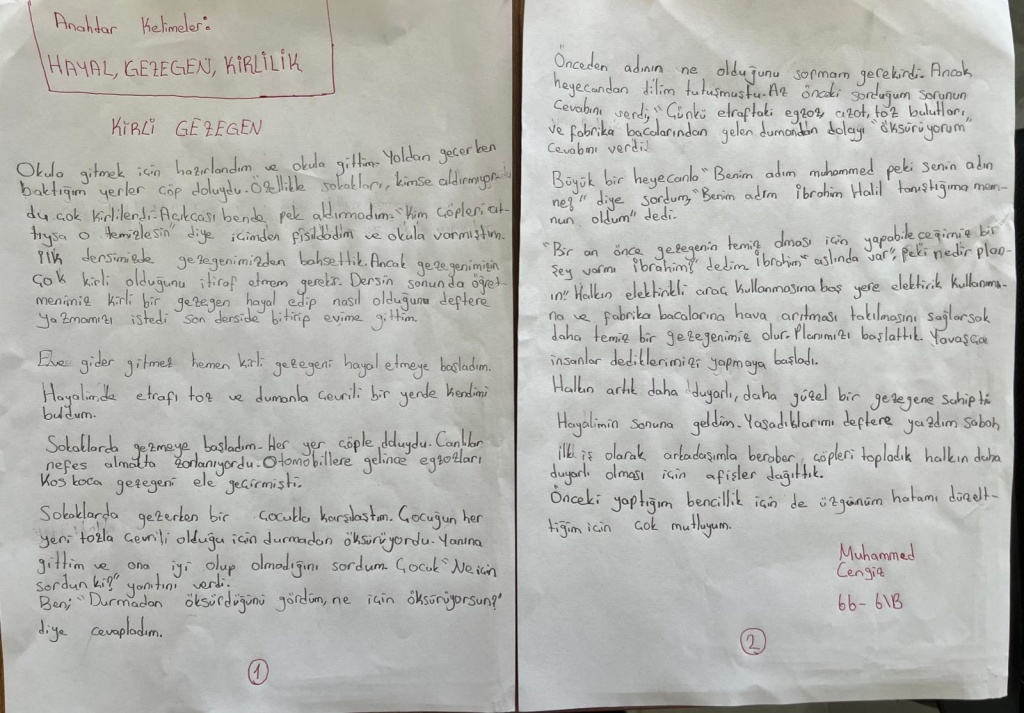 Anahtar Kelimeler:
HAYAL, GEZEGEN, KİRLİLİK
KİRLİ GEZEGEN
Okula gitmek için hazırlandım ve okula gittim. Yoldan geçerken
baktığım yerler çöp doluydu. Özellikle sokakları, kimse aldırmıyor-
du çok kirlilerdi. Açıkcası bende pek aldırmadım. "Kim çöpleri at-
tıysa o temizlesin" diye içimden fısıldadım ve okula varmıştım.
İlk dersimizde gezegenimizden bahsettik. Ancak gezegenimizin
çok kirli olduğunu itiraf etmem gerekir. Dersin sonunda öğret-
menimiz kirli bir gezegen hayal edip nasıl olduğunu deftere
yazmamızı istedi son derside bitirip evime gittim.
Eve gider gitmez hemen kirli gezegeni hayal etmeye başladım.
Hayalimde etrafı toz ve dumanla çevrili bir yerde kendimi
buldum.
Sokaklarda gezmeye başladım. Her yer çöple doluydu. Canlılar
nefes almakta zorlanıyordu. Otomobillere gelince egzozları
koskoca gezegeni ele geçirmişti.
Sokaklarda gezerken bir çocukla karşılaştım. Çocuğun her
yeri tozla çevrili olduğu için durmadan öksürüyordu. Yanına
gittim ve ona iyi olup olmadığını sordum. Çocuk "Ne için
sordun ki?" yanıtını verdi.
Ben; "Durmadan öksürdüğünü gördüm, ne için öksürüyorsun?"
diye cevapladım.
1
Önceden adının ne olduğunu sormam gerekirdi. Ancak
heyecandan dilim tutuşmuştu. Az önceki sorduğum sorunun
cevabını verdi, "Çünkü etraftaki egzoz, cızot, toz bulutları,
ve fabrika bacalarından gelen dumandan dolayı "öksürüyorum"
cevabını verdi!
Büyük bir heyecanla "Benim adım muhammed peki senin adın
ne?" diye sordum, "Benim adım İbrahim Halil tanıştığıma mem-
nun oldum" dedi.
"Bir an önce gezegenin temiz olması için yapabileceğimiz bir
şey varmı İbrahim?" dedim. İbrahim "aslında var" peki nedir plan-
ın" Halkın elektirikli araç kullanmasına boş yere elektirik kullanımı-
na ve fabrika bacalarına hava arıtması takılmasını sağlarsak
daha temiz bir gezegenimiz olur. Planımızı başlattık. Yavaşça
insanlar dediklerimizi yapmaya başladı.
Halkın artık daha duyarlı, daha güzel bir gezegene sahipti
Hayalimin sonuna geldim. Yaşadıklarımı deftere yazdım sabah
ilk iş olarak arkadaşımla beraber çöpleri topladık halkın daha
duyarlı olması için afişler dağıttık.
Önceki yaptığım bencillik için de üzgünüm hatamı düzelt-
tiğim için çok mutluyum.
Muhammed
Cengiz
66-6\B
2